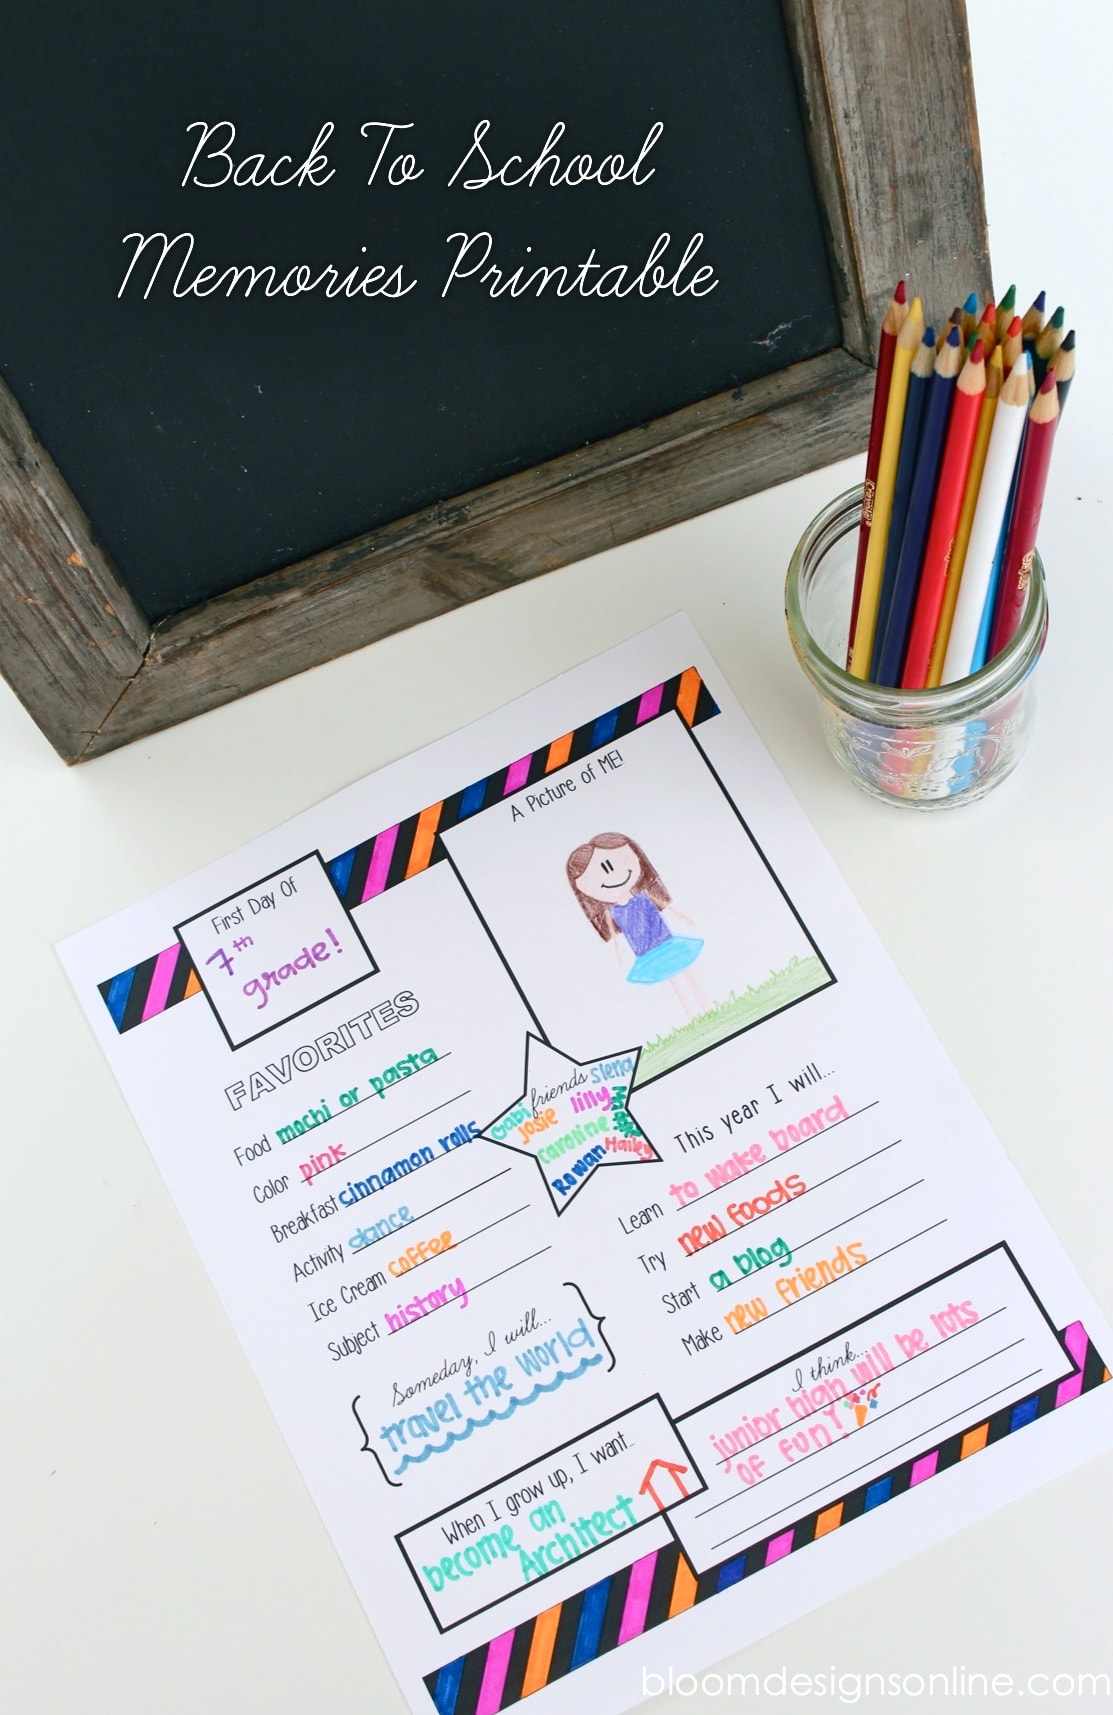 Back To School
Memories Printable
A Picture of ME!
First Day Of
7th
grade!
FAVORITES
Food mochi or pasta
Color pink
Breakfast cinnamon rolls
Activity dance
Ice Cream coffee
Subject history
friends
Slena
Gabi
Josie
lilly
caroline
Rowan
Hailey
This year I will...
Learn to wake board
Try new foods
Start a blog
Make new friends
Someday, I will...
travel the world
I think...
junior high will be lots
of fun!
When I grow up, I want...
become an
Architect
bloomdesignsonline.com